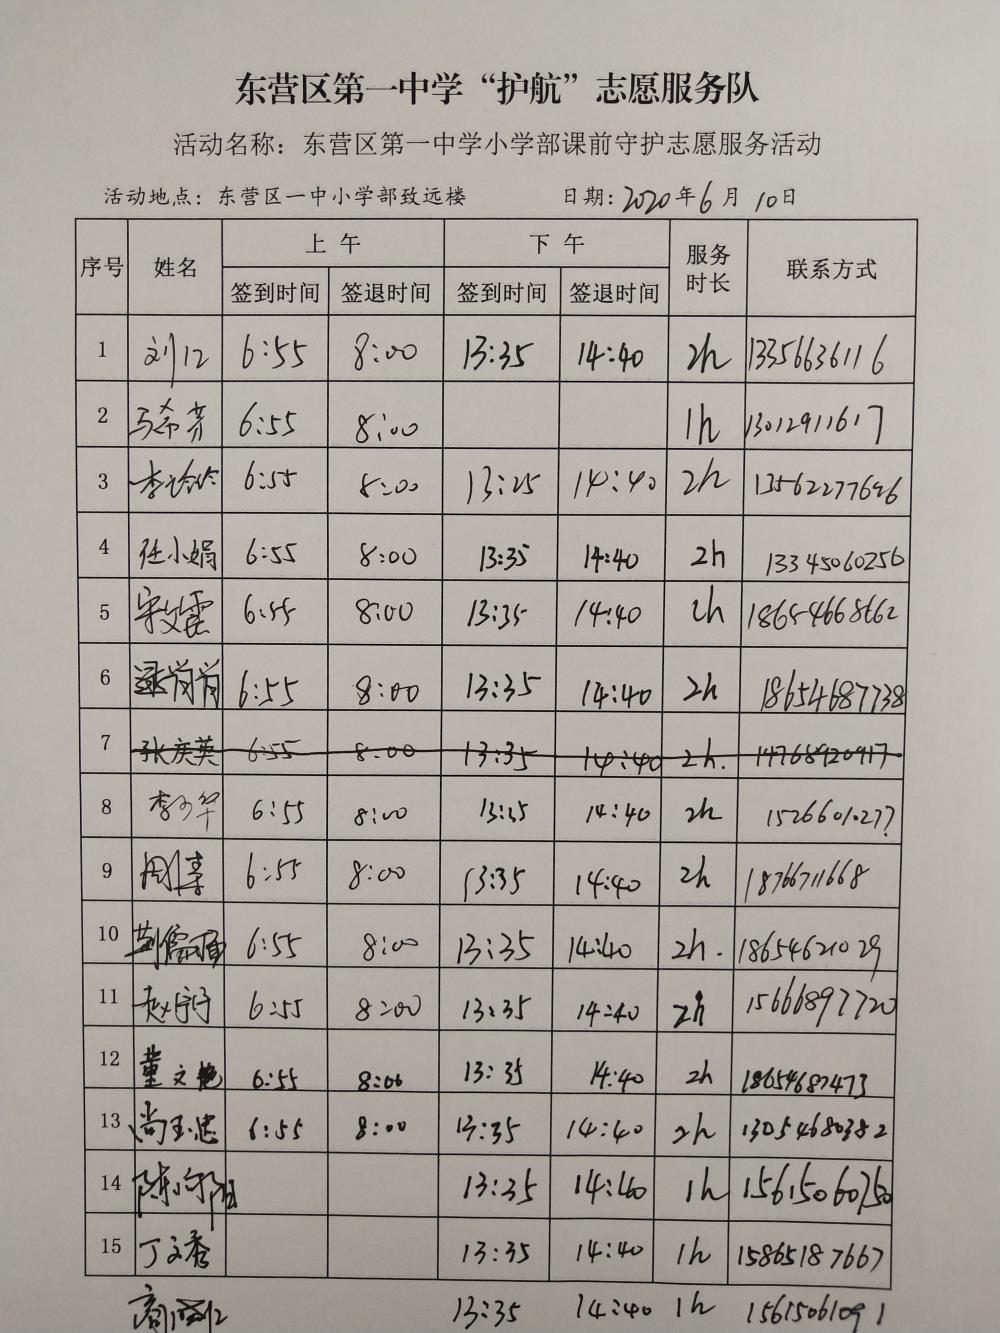 东营区第一中学“护航”志愿服务队
活动名称：东营区第一中学小学部课前守护志愿服务活动
活动地点：东营区一中小学部致远楼 日期：2020年6月10日
序号 姓名 上午 下午 服务时长 联系方式
签到时间 签退时间 签到时间 签退时间
1 刘江 6:55 8:00 13:35 14:40 2h 13356636116
2 马希芳 6:55 8:00 1h 13012911617
3 李玲玲 6:55 8:00 13:25 14:40 2h 13562277696
4 任小娟 6:55 8:00 13:35 14:40 2h 13345060256
5 宋文霞 6:55 8:00 13:35 14:40 2h 18654668662
6 梁肖肖 6:55 8:00 13:35 14:40 2h 18654687738
7 张庆英 6:55 8:00 13:35 14:40 2h. 14768920917
8 6:55 8:00 13:35 14:40 2h 15266010277
9 周倩 6:55 8:00 13:35 14:40 2h 18766711668
10 6:55 8:00 13:35 14:40 2h. 18654621029
11 赵宁宁 6:55 8:00 13:35 14:40 2h 15666897720
12 董文艳 6:55 8:00 13:35 14:40 2h 18654687473
13 尚玉忠 6:55 8:00 13:35 14:40 2h 13054680382
14 13:35 14:40 1h 15615060750
15 丁文秀 13:35 14:40 1h 15865187667
13:35 14:40 1h 15615061091